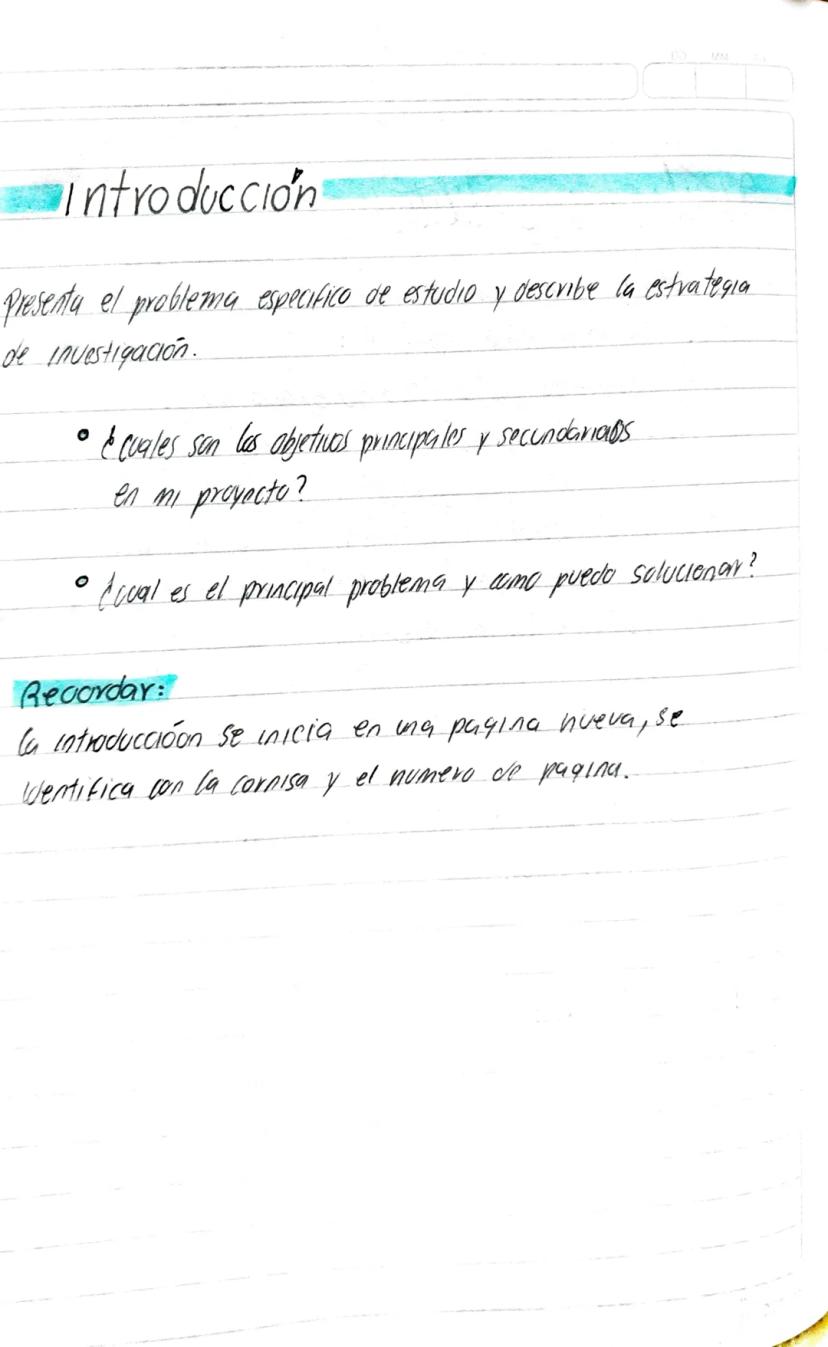 Introducción
Presenta el problema especifico de estudio y describe la estrategia
de investigación.
° ¿cuales son los objetivos principales y secundarios
en mi proyecto?
° ¿cual es el principal problema y como puedo solucionar?
Recordar:
la introduccióon se inicia en una pagina nueva, se
identifica con la cornisa y el numero de pagina.